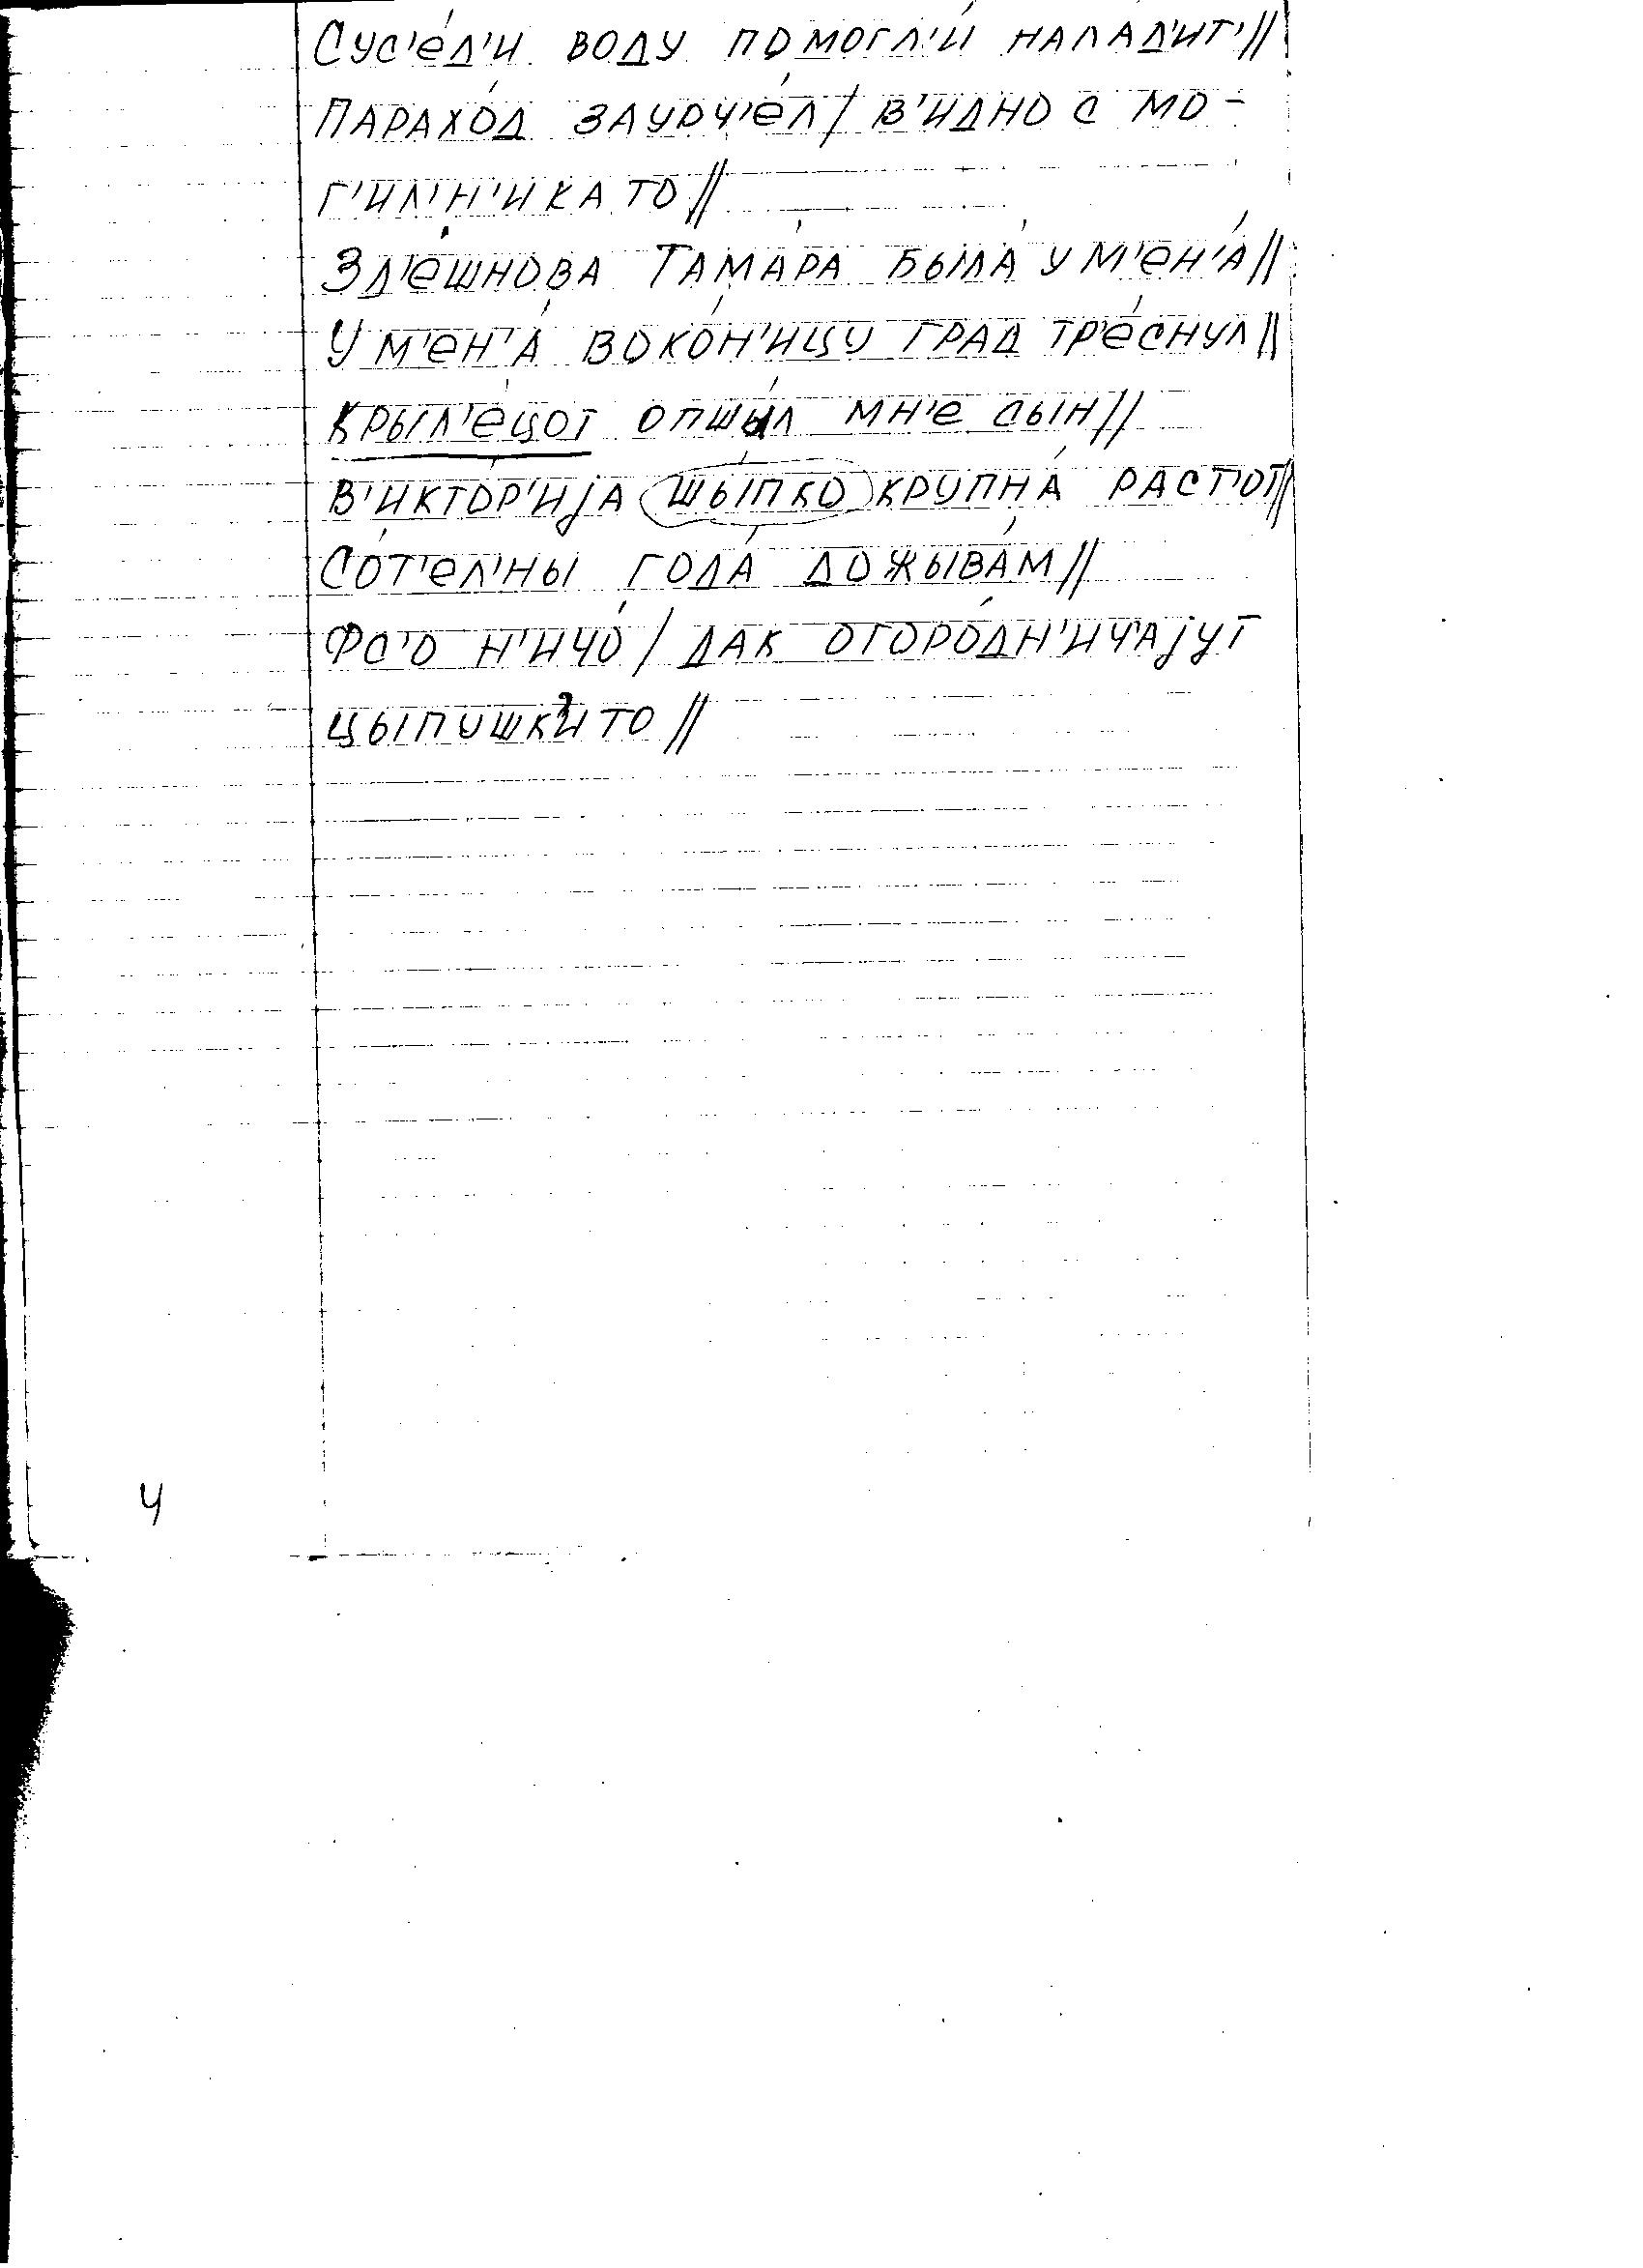 Сус'е́д'и воду помогл'и́ налад'ит'//
Парахо́д заурч'е́л/ в'идно с мо-
г'ил'н'ика то//
Зд'е́шнова Тама́ра была́ у м'ен'а́//
У м'ен'а́ воко́н'ицу град тр'е́снул//
Крыл'ецо́т опшы́л мн'е сын//
В'икто́р'иjа шы́пко крупна́ раст'от//
Со́т'ел'ны года́ дожыва́м//
Фс'о н'ичо́/ дак огоро́дн'ич'аjут
цыпушк'и то//
4